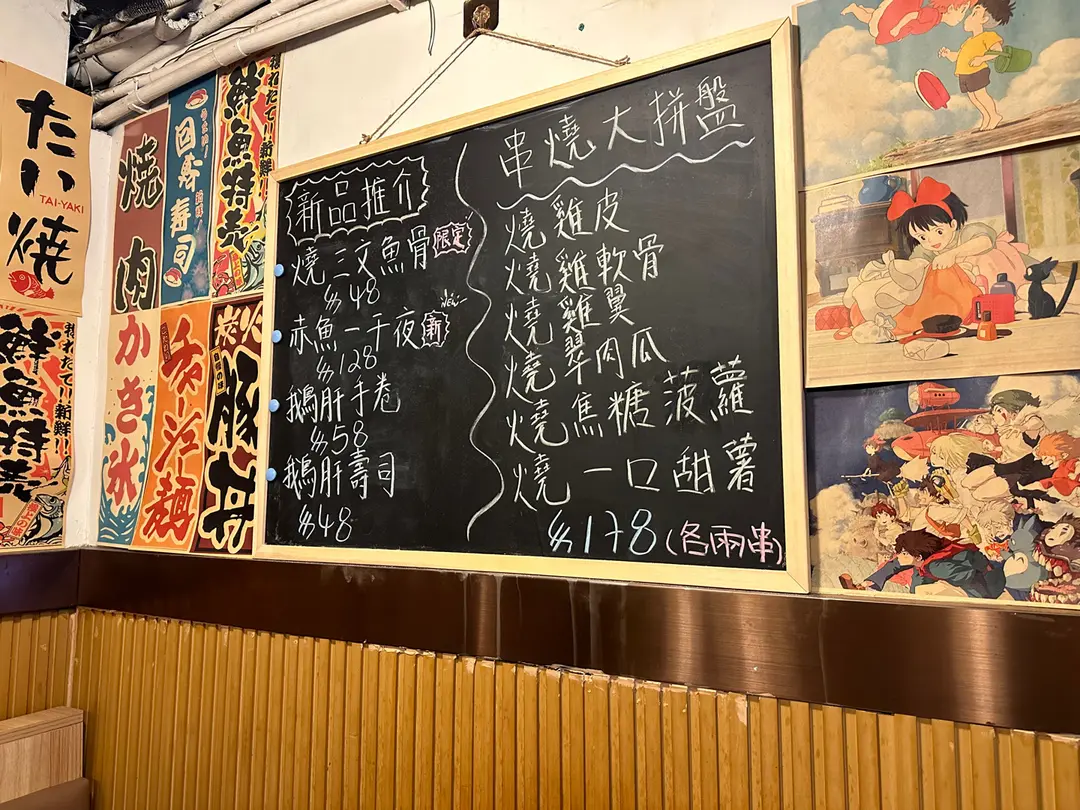 たい焼
TAI-YAKI
鮮魚特売
焼肉
回寿
寿司
鮮魚特売
かき氷
チャーシュー麺
炭火
豚丼
新品推介
燒三文魚骨 限定
$48
赤魚一干夜 新
New
$128
鵝肝手卷
$58
鵝肝壽司
$48
串燒大拼盤
燒雞皮
燒雞軟骨
燒雞翼
燒翠肉瓜
燒焦糖菠蘿
燒一口甜薯
$178(各兩串)